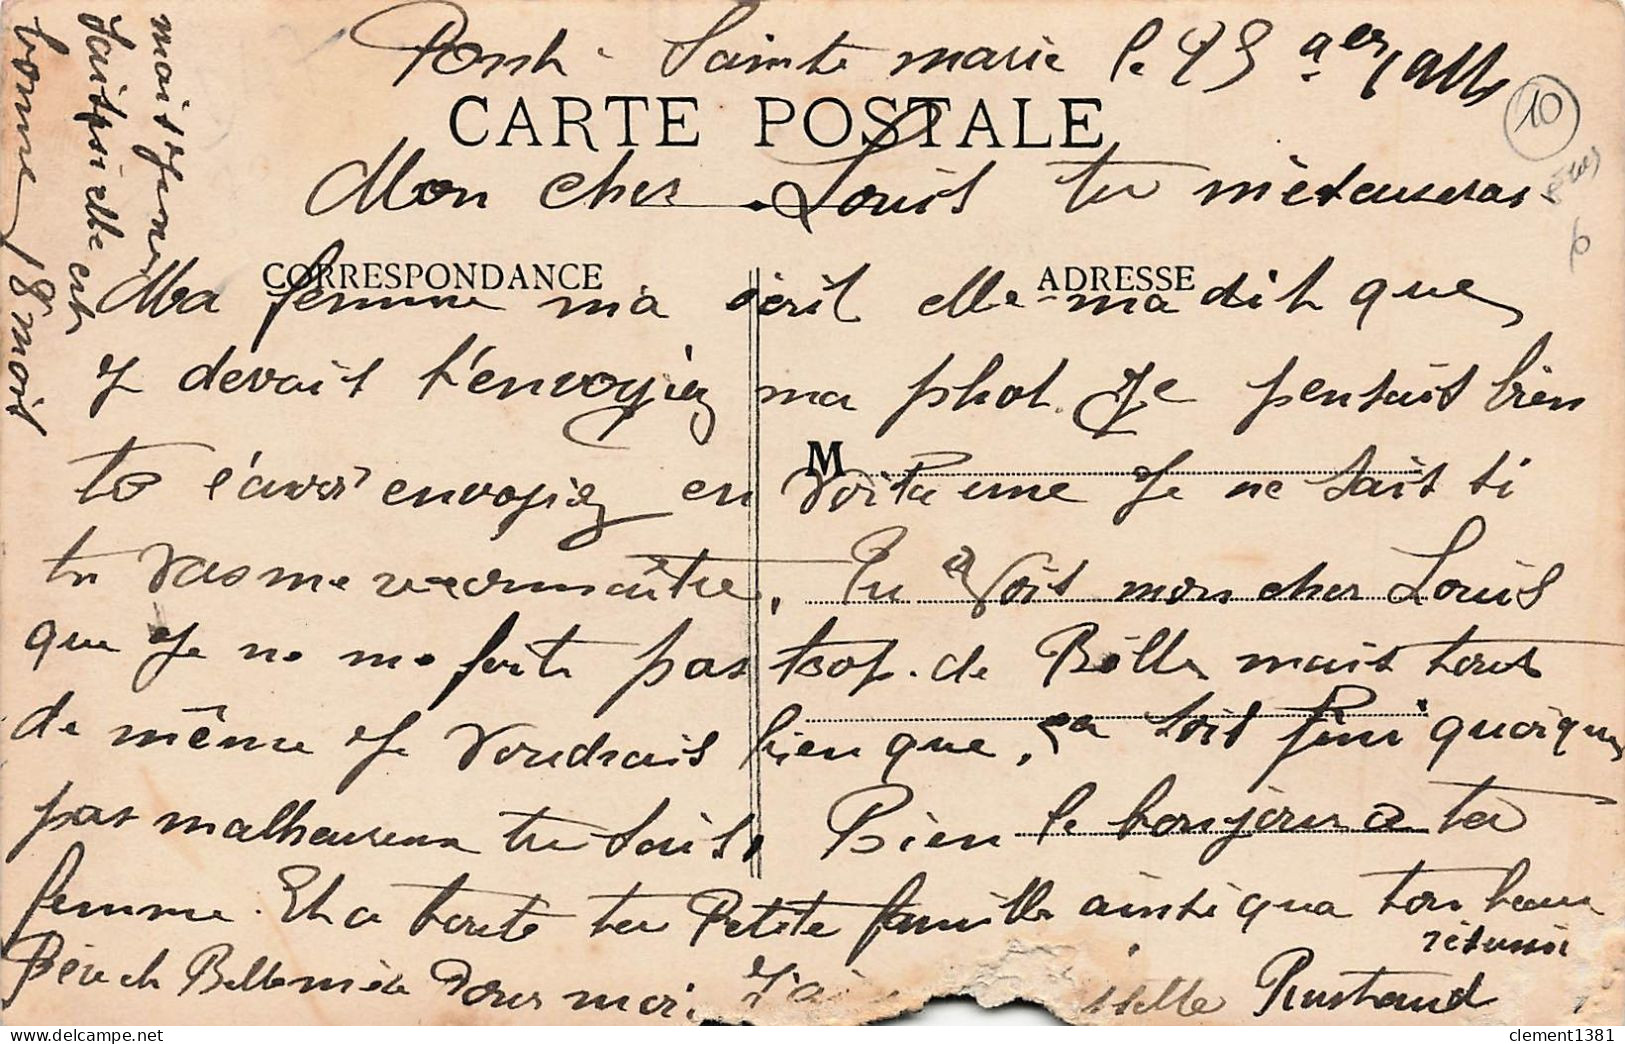 Pont Sainte marie le
CARTE POSTALE
10
Mon cher Louis tu m'excuseras
CORRESPONDANCE
ADRESSE
Ma femme ma écrit elle ma dit que
J devait t'envoyiez ma phot. Je pensait bien
M
to l'avoir envoyiez en voila une Je ne sait si
tu vas me reconnaître, Tu vois mon cher Louis
que Je ne me porte pas trop de Bille mais tout
de même Je voudrais bien que, sa soit fini quoique
pas malheureux tu sais, Bien le bonjour a ta
femme. Et a toute ta Petite famille ainsi qua ton beau
Père et Belle mère Pour moi. J'ai
Rustaud
mais
sait si elle est
bonne 18 mois
clement1381